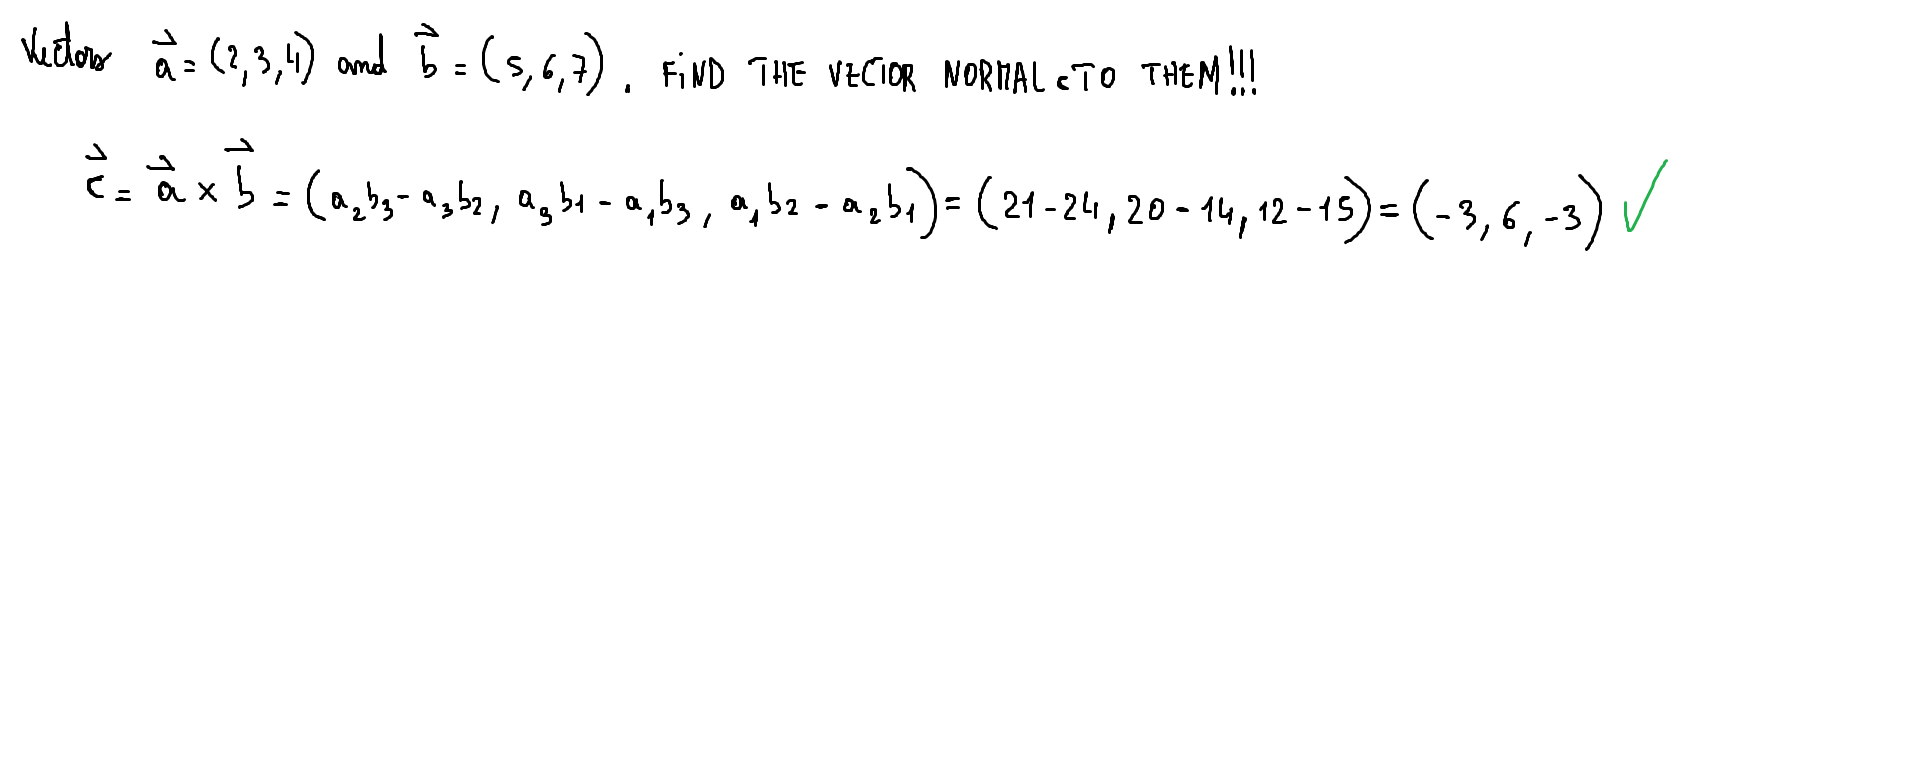 Vectors a⃗ = (2,3,4) and b⃗ = (5,6,7). FiND THE VECTOR NORMAL TO THEM!!!
c⃗ = a⃗ × b⃗ = (a₂b₃ - a₃b₂, a₃b₁ - a₁b₃, a₁b₂ - a₂b₁) = (21-24, 20-14, 12-15) = (-3, 6, -3) ✓